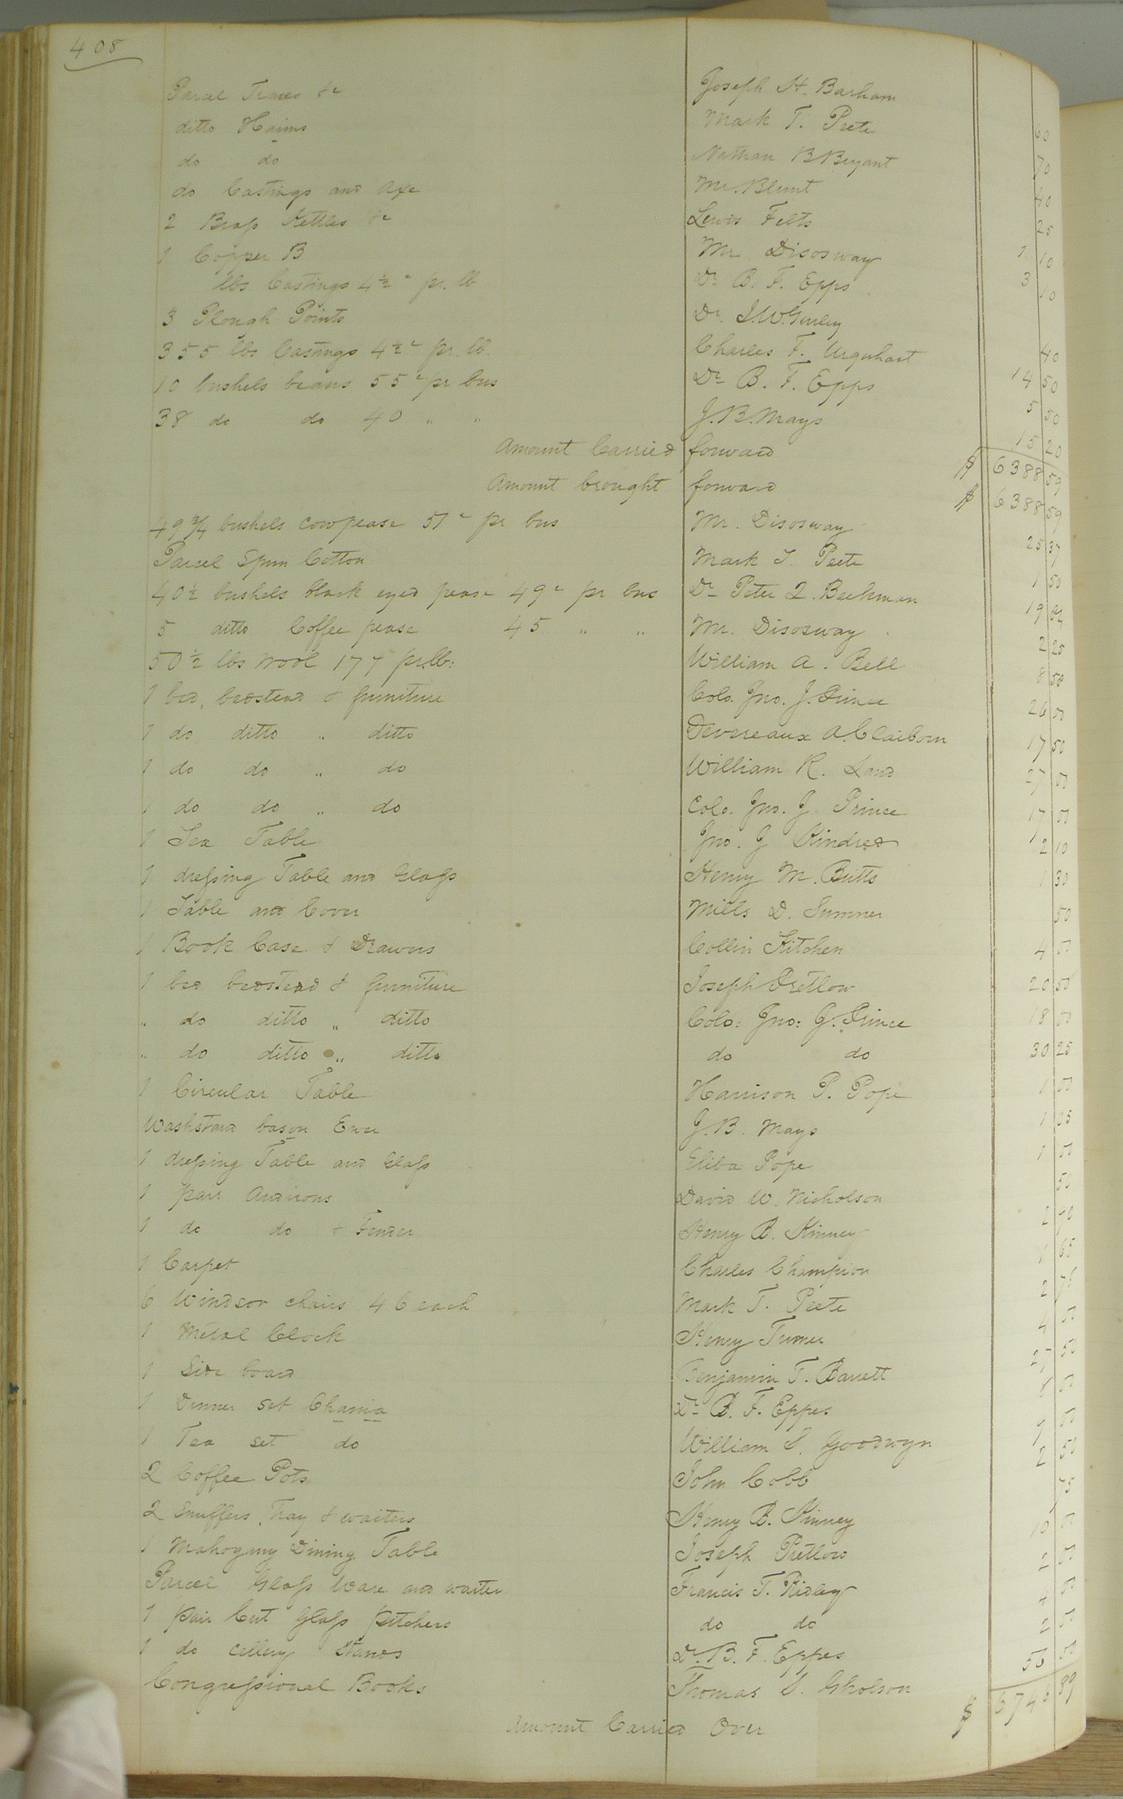 408
Parcel Traces &c Joseph H. Barham 60
ditto Haims Mark T. Peete 70
do do Nathan B Bryant 40
do Castings and Axe Mr. Blunt 25
2 Brass Kettles &c Lewis Felts 1 10
1 Copper B Mr Disosway 3 10
lbs Castings 4½ c pr. lb Dr B. F. Epps
3 Plough Points Dr. J.W. Gurley 40
355 lbs Castings 4½ c pr. lb. Charles F. Urquhart 14 50
10 bushels beans 55 c pr bus Dr B. F. Epps 5 50
38 do do 40 " " J. B. Mays 15 20
Amount Carried forward $ 6388 59
Amount brought forward $ 6388 59
49¾ bushels cowpease 51 c pr bus Mr. Disosway 25 37
Parcel Spun Cotton Mark T. Peete 1 50
40½ bushels black eyed pease 49 c pr bus Dr Peter Q. Beekman 19 84
5 ditto Coffee pease 45 " " Mr. Disosway 2 25
50½ lbs wool 177 pr lb: William A. Bell 8 58
1 bed, bedstead & furniture Colo. Jno. J. Prince 26 50
1 do ditto " ditto Devereaux A. Claiborn 17 50
1 do do " do William R. Land 27 50
1 do do " do Colo. Jno. J. Prince 17 50
1 Tea Table Jno. J Kindred 2 10
1 dressing Table and Glass Henry M. Butts 1 30
1 Table and Cover Mills D. Sumner 50
1 Book Case & Drawers Collin Kitchen 4 50
1 bed bedstead & furniture Joseph Pretlow 20 50
" do ditto " ditto Colo: Jno: J. Prince 18 50
" do ditto " ditto do do 30 25
1 Circular Table Harrison P. Pope 1 50
Washstand bason Ewer J. B. Mays 1 05
1 dressing Table and Glass Eliba Pope 1 50
1 pair Andirons David W. Nicholson 50
1 do do & Fender Henry B. Kinney 2
1 Carpet Charles Champion
6 Windsor chairs 46 each Mark T. Peete 2 76
1 Metal Clock Henry Turner 4
1 Side board Benjamin T. Barrett 50
1 Dinner set Chania Dr B. F. Eppes
1 Tea set do William S. Goodwyn
2 Coffee Pots John Cobb 2 50
2 Snuffers, Tray & waiters Henry B. Kinney 75
1 Mahogany Dining Table Joseph Pretlow 10
Parcel Glass Ware and waiter Francis T. Ridley 2
1 pair Cut Glass pitchers do do
1 do cellery Stands Dr. B. F. Eppes 2
Congressional Books Thomas S. Gholson 50
Amount Carried Over $ 89